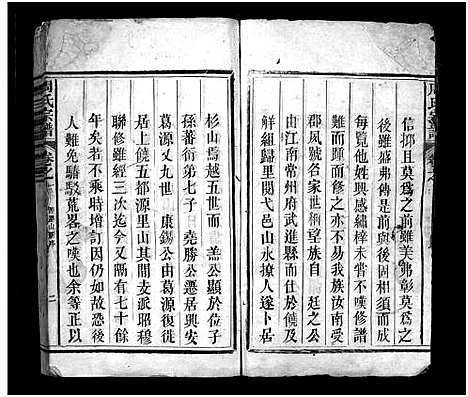 信抑且莫爲之前雖美弗彰莫爲之
後雖盛弗傳是前與後固相須而成
每覽他姓興感繡梓未嘗不嘆修譜
難而踵而修之亦不易我族汝南受
郡夙號名家世稱望族自 廷之公
由江南常州府武進縣而仕於饒及
解組歸里閱弋邑山水撩人遂卜居
杉山焉越五世而 盖公顯於位子
孫蕃衍第七子 堯勝公遷居興安
葛源又九世 康錫公由葛源復徙
居上饒五都源里山其間支派昭穆
聯修雖經三次迄今又隔有七十餘
年矣若不乘時增訂因仍如故恐後
人難免駱駁荒畧之嘆也余等正以
周氏宗譜
卷之
二